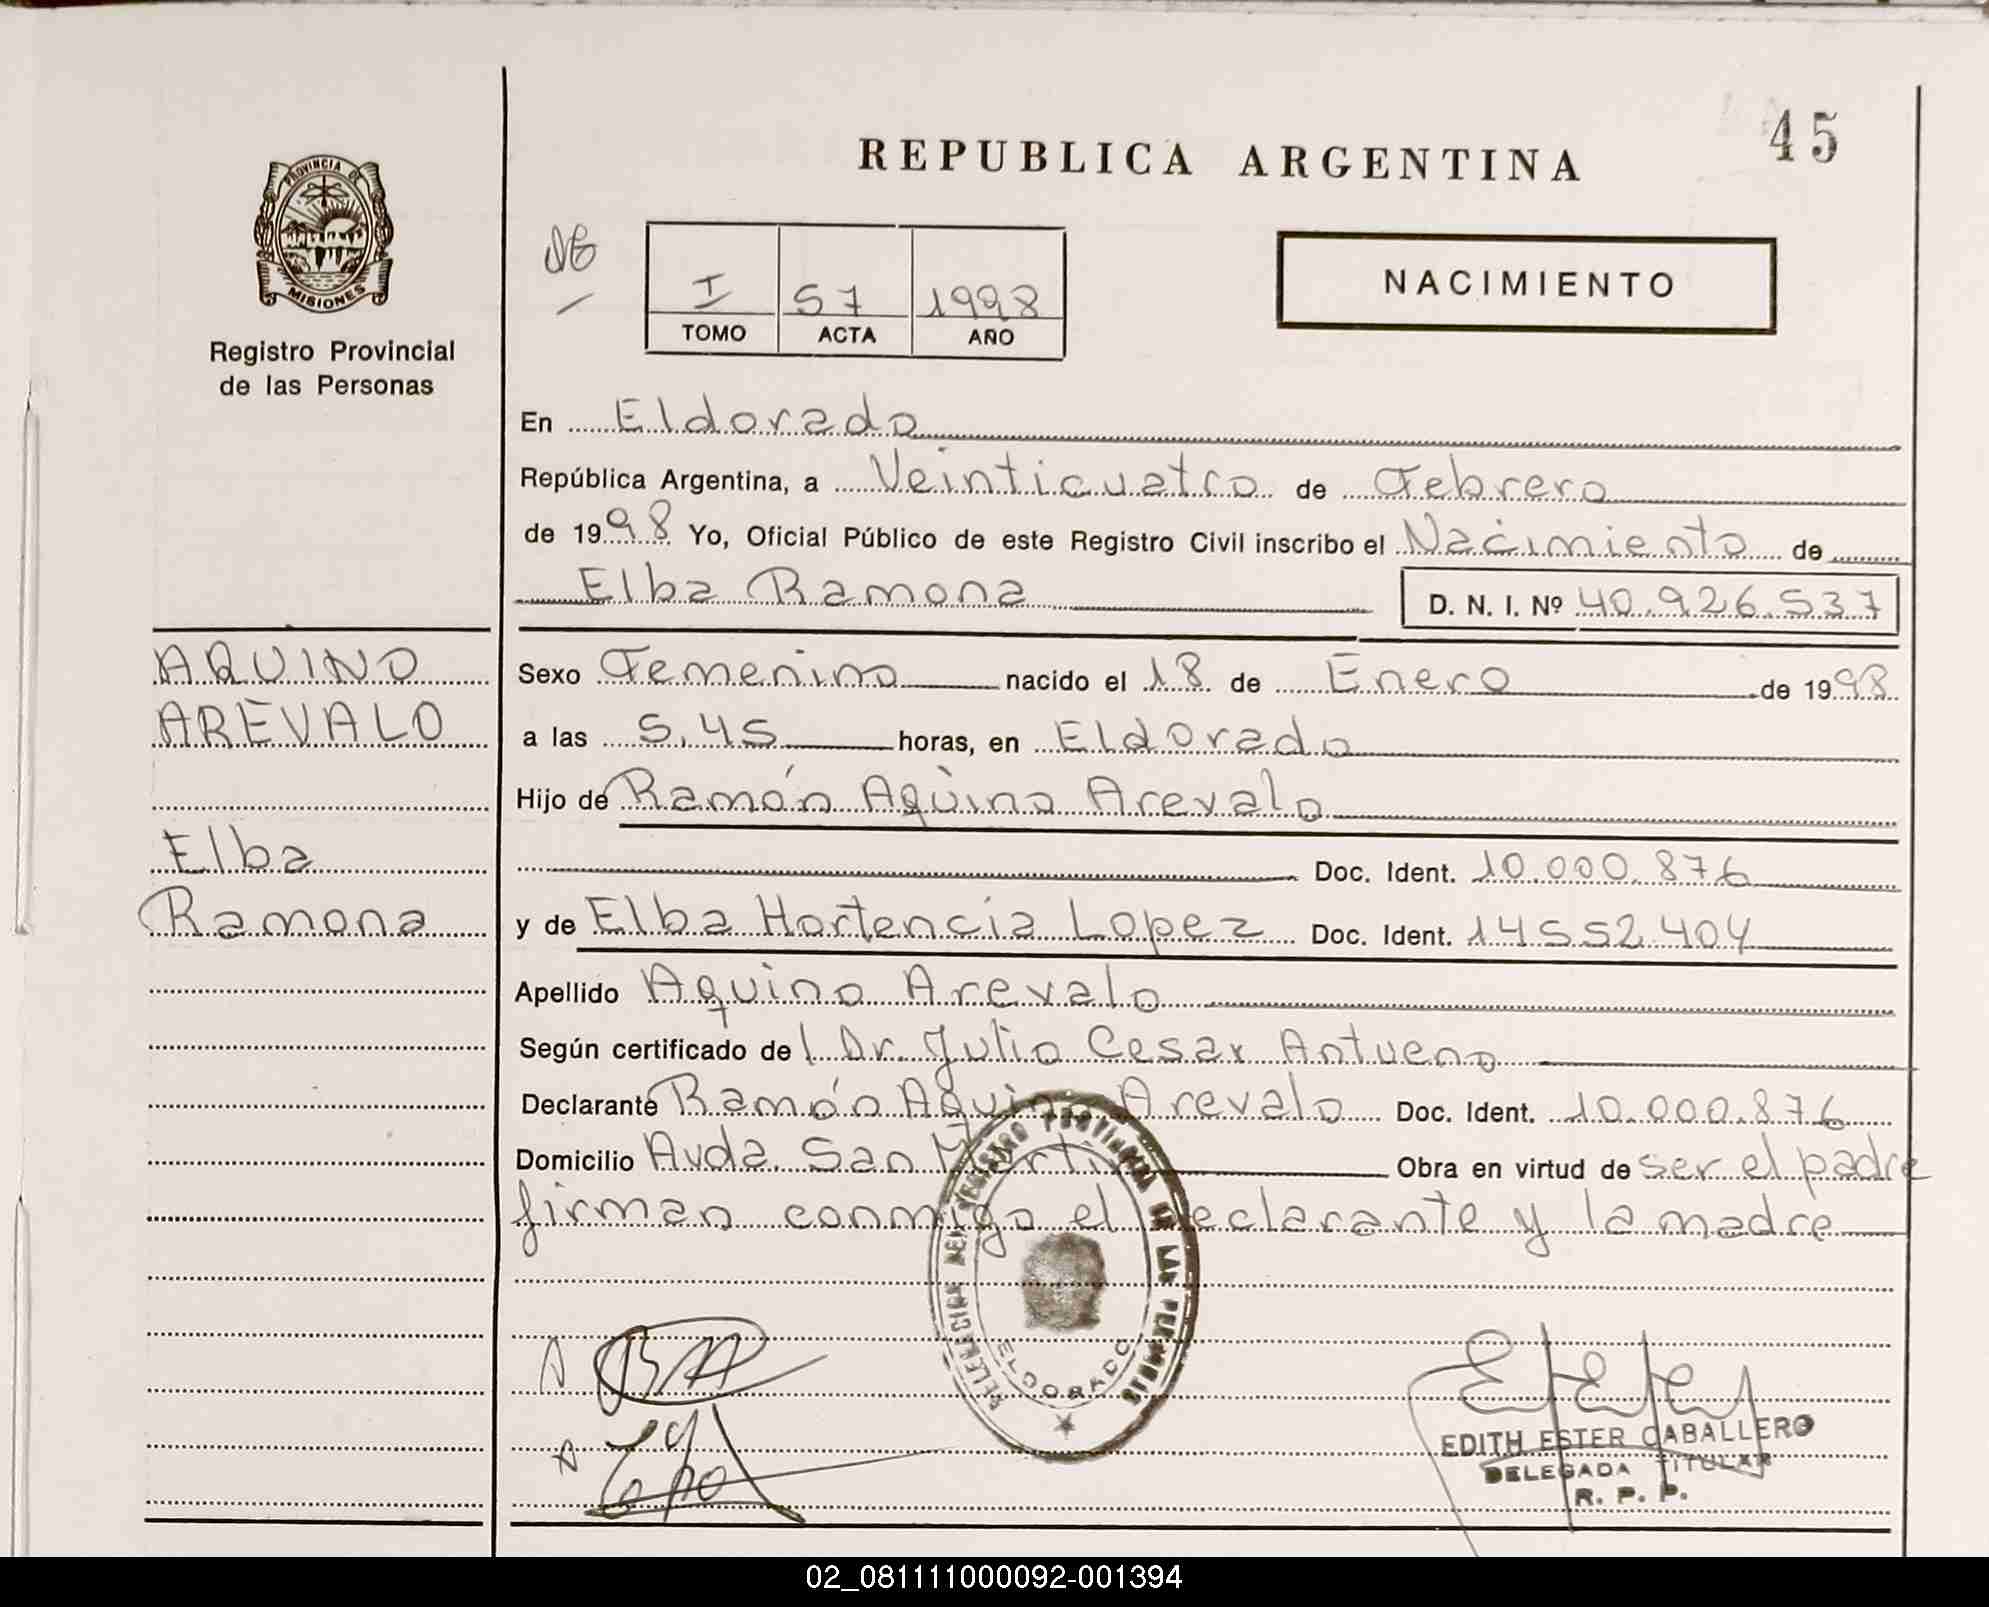 45
REPUBLICA ARGENTINA
PROVINCIA DE
MISIONES
Registro Provincial
de las Personas
NACIMIENTO
I 57 1998
TOMO ACTA AÑO
En Eldorado
República Argentina, a Veinticuatro de Febrero
de 1998 Yo, Oficial Público de este Registro Civil inscribo el Nacimiento de
Elba Ramona D. N. I. Nº 40.926.537
AQUINO
AREVALO
Elba
Ramona
Sexo Femenino nacido el 18 de Enero de 1998
a las 5,45 horas, en Eldorado
Hijo de Ramón Aquino Arevalo
Doc. Ident. 10.000.876
y de Elba Hortencia Lopez Doc. Ident. 14552404
Apellido Aquino Arevalo
Según certificado de l Dr. Julio Cesar Antueno
Declarante Ramón Aquino Arevalo Doc. Ident. 10.000.876
Domicilio Avda. San Martin Obra en virtud de ser el padre
firman conmigo el declarante y la madre
DELEGACION DEL REGISTRO PROVINCIAL DE LAS PERSONAS
ELDORADO
EDITH ESTER CABALLERO
DELEGADA TITULAR
R. P. P.
02_081111000092-001394